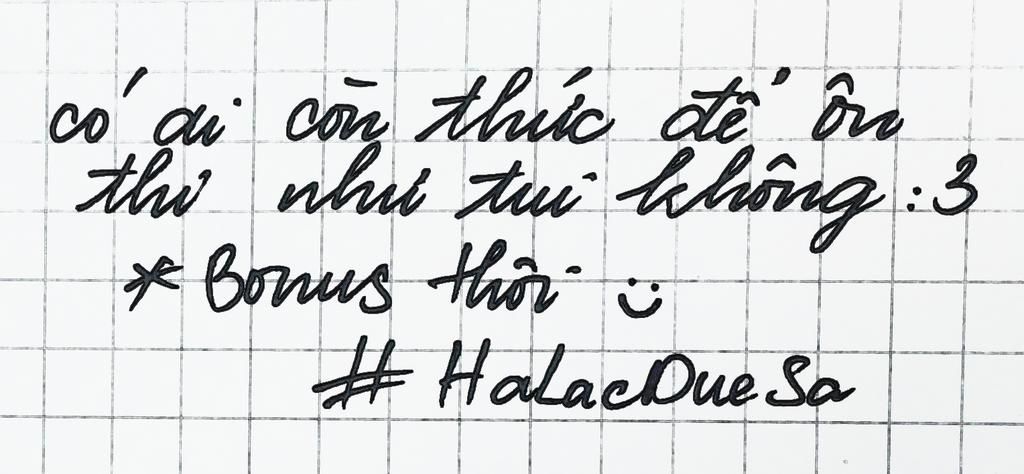 có ai còn thức để ôn
thi như tui không :3
* Bonus thôi :)
# HaLacDueSa